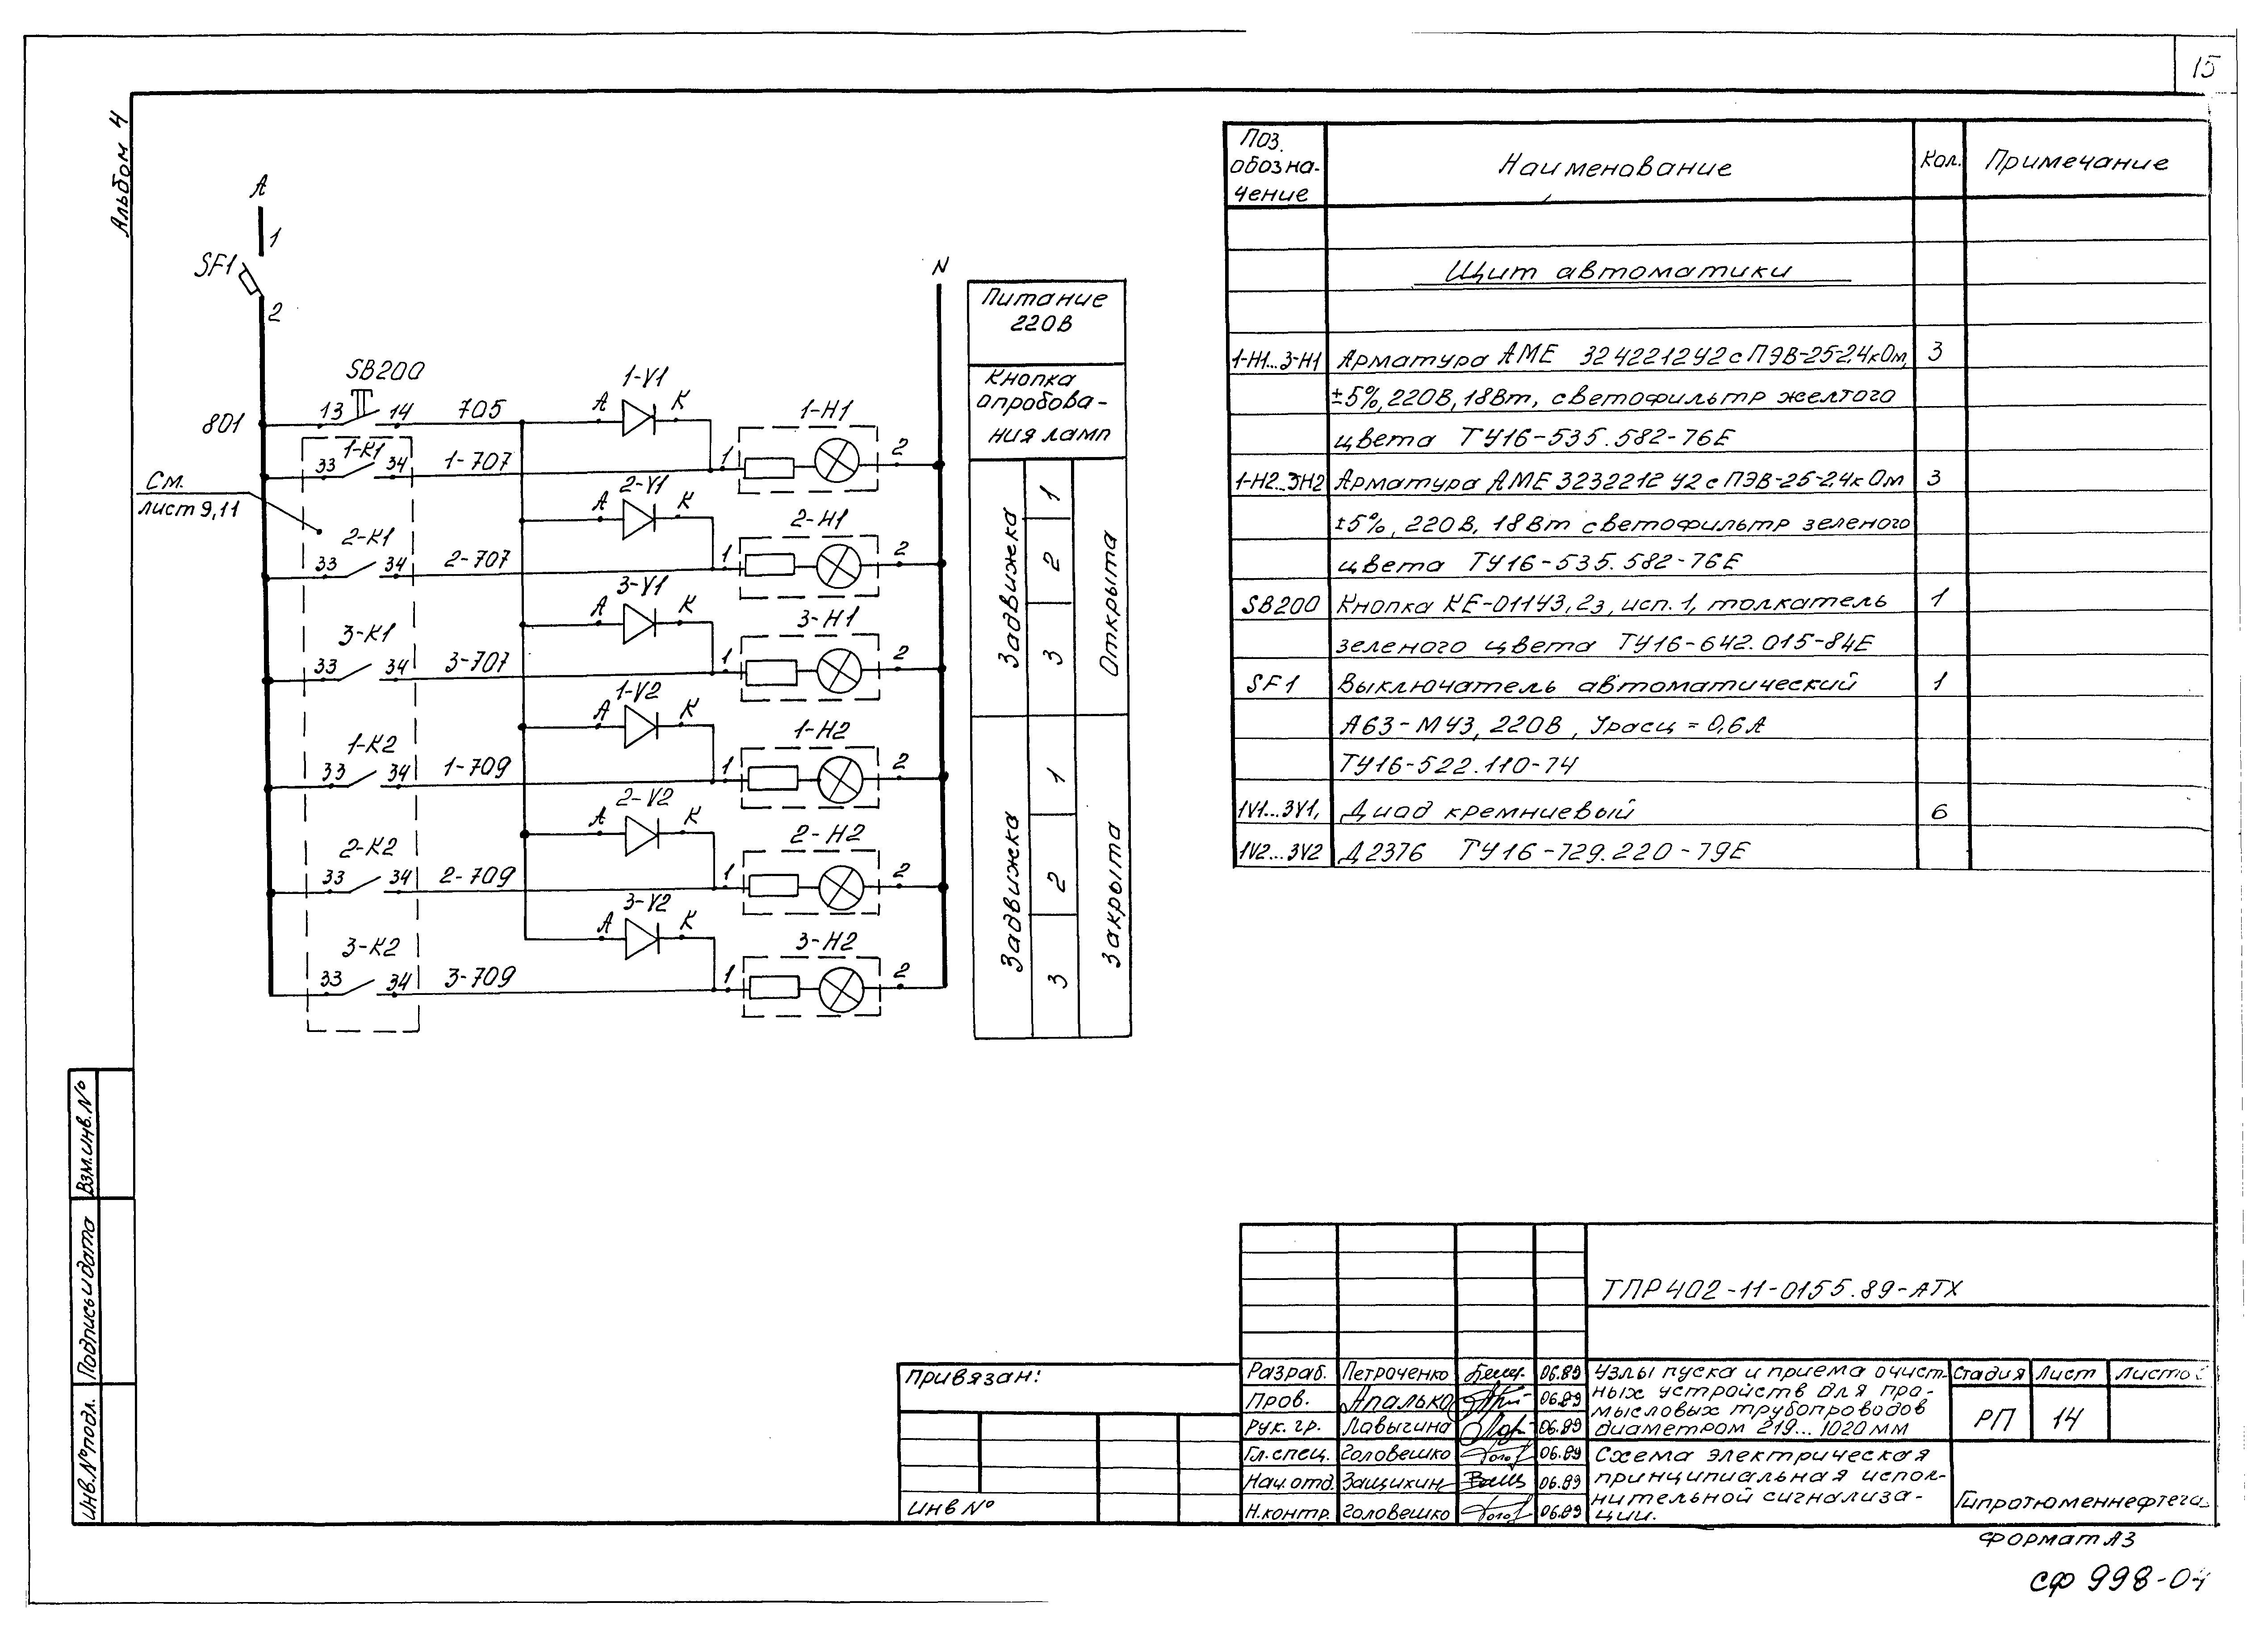 15
Альбом 4
А
1
SF1
2
N
801
SB200
13 14 705
1-V1
А К
1-Н1
1 2
1-К1
33 34 1-707
См.
лист 9,11
2-V1
А К
2-Н1
1 2
2-К1
33 34 2-707
3-V1
А К
3-Н1
1 2
3-К1
33 34 3-707
1-V2
А К
1-Н2
1 2
1-К2
33 34 1-709
2-V2
А К
2-Н2
1 2
2-К2
33 34 2-709
3-V2
А К
3-Н2
1 2
3-К2
33 34 3-709
Питание
220В
Кнопка
опробова-
ния ламп
Задвижка
1
2
3
Открыта
Задвижка
1
2
3
Закрыта
Поз.
обозна-
чение
Наименование
Кол.
Примечание
Щит автоматики
1-Н1...3-Н1 Арматура АМЕ 324221242 с ПЭВ-25-2,4кОм, 3
±5%, 220В, 18Вт, светофильтр желтого
цвета ТУ16-535.582-76Е
1-Н2...3Н2 Арматура АМЕ 3232212 У2 с ПЭВ-25-2,4кОм 3
±5%, 220В, 18Вт светофильтр зеленого
цвета ТУ16-535.582-76Е
SB200 Кнопка КЕ-011У3, 2з, исп. 1, толкатель 1
зеленого цвета ТУ16-642.015-84Е
SF1 Выключатель автоматический 1
А63-МУ3, 220В, Iрасц = 0,6А
ТУ16-522.110-74
1V1...3V1, Диод кремниевый 6
1V2...3V2 Д237б ТУ16-729.220-79Е
Взм.инв.№
Подпись и дата
Инв.№ подл.
Привязан:
Инв №
ТПР402-11-0155.89-АТХ
Разраб. Петроченко 06.89
Пров. Апалько 06.89
Рук. гр. Лавыгина 06.89
Гл. спец. Головешко 06.89
Нач. отд. Защихин 06.89
Н.контр. Головешко 06.89
Узлы пуска и приема очист-
ных устройств для про-
мысловых трубопроводов
диаметром 219...1020 мм
Стадия Лист Листо
РП 14
Схема электрическая
принципиальная испол-
нительной сигнализа-
ции.
Гипротюменнефтега
Формат А3
СФ 998-04